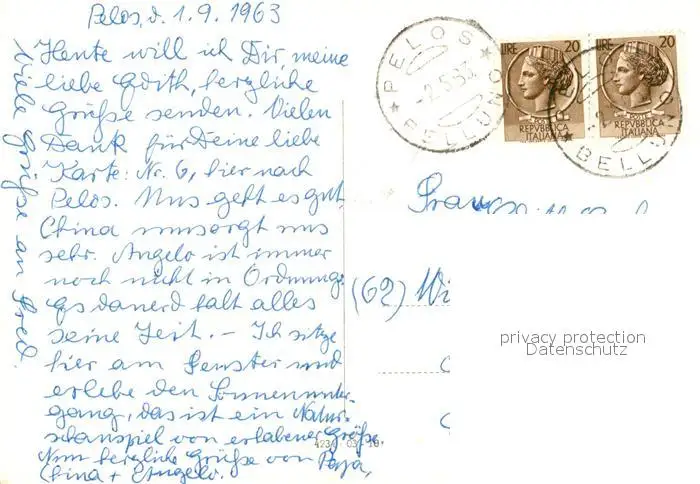 Pelos, d. 1.9.1963
Heute will ich Dir, meine
liebe Edith, herzliche
Grüße senden. Vielen
Dank für Deine liebe
Karte: Nr. 6, hier nach
Pelos. Uns geht es gut,
China umsorgt uns
sehr. Angelo ist immer
noch nicht in Ordnung.
Es dauerd halt alles
seine Zeit. – Ich sitze
hier am Fenster und
erlebe den Sonnenunter-
gang, das ist ein Natur-
schauspiel von erhabener Größe
Nun herzliche Grüße von Papa,
China + Angelo.
Viele Grüße an Fred.
PELOS
BELLUNO
LIRE 20
REPVBBLICA
ITALIANA
LIRE 20
REPVBBLICA
ITALIANA
BELLUNO
(62) Wi
privacy protection
Datenschutz